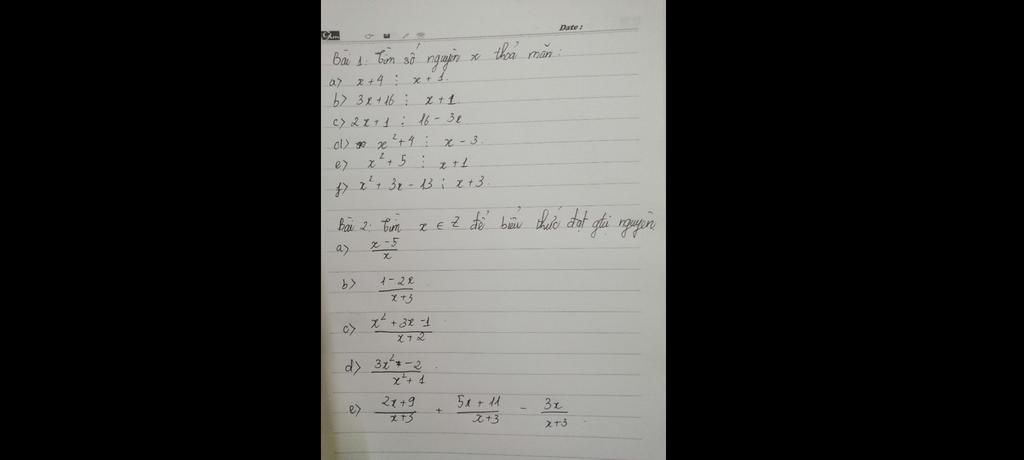 Date :
Bài 1: Tìm số nguyên x thoả mãn:
a) x + 4 ⋮ x + 1.
b) 3x + 16 ⋮ x + 1.
c) 2x + 1 ⋮ 16 - 3x
d) x² + 4 ⋮ x - 3.
e) x² + 5 ⋮ x + 1
f) x² + 3x - 13 ⋮ x + 3.
Bài 2: Tìm x ∈ Z để biểu thức đạt gtị nguyên
a) (x - 5)/x
b) (1 - 2x)/(x + 3)
c) (x² + 3x - 1)/(x + 2)
d) (3x² - 2)/(x² + 1)
e) (2x + 9)/(x + 3) + (5x + 11)/(x + 3) - 3x/(x + 3)